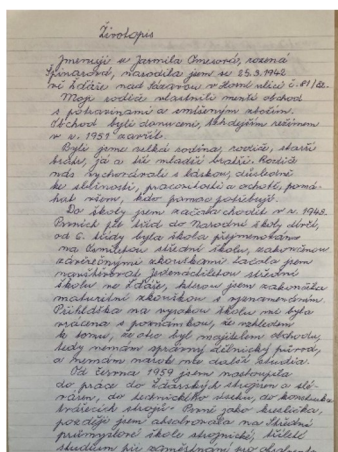 Životopis
Jmenuji se Jarmila Omesová, rozená
Špinarová, narodila jsem se 25.3.1942
ve Žďáře nad Sázavou v Horní ulici č. 81/82.
Moji rodiče vlastnili menší obchod
s potravinami a smíšeným zbožím.
Obchod byli donuceni, tehdejším režimem
v r. 1951 zavřít.
Byli jsme velká rodina, rodiče, starší
bratr, já a tři mladší bratři. Rodiče
nás vychovávali s láskou, důsledně
ke slušnosti, pracovitosti a ochotě, pomá-
hat všem, kdo pomoc potřebují.
Do školy jsem začala chodit v r. 1948.
Prvních pět tříd do Národní školy dívčí,
od 6. třídy byla škola přejmenována
na Osmiletou střední školu, zakončenou
závěrečnými zkouškami. Začala jsem
navštěvovat Jedenáctiletou střední
školu ve Žďáře, kterou jsem zakončila
maturitní zkouškou s vyznamenáním.
Přihláška na vysokou školu mi byla
vrácena s poznámkou, že vzhledem
k tomu, že otec byl majitelem obchodu,
tedy nemám správný dělnický původ,
a nemám nárok na další studia.
Od června 1959 jsem nastoupila
do práce do Žďárských strojíren a slé-
váren, do technického úseku, do konstrukce
tvářecích strojů. Prvně jako kreslička,
později jsem absolvovala na Střední
průmyslové škole strojnické, tříleté
studium při zaměstnání pro absolventy